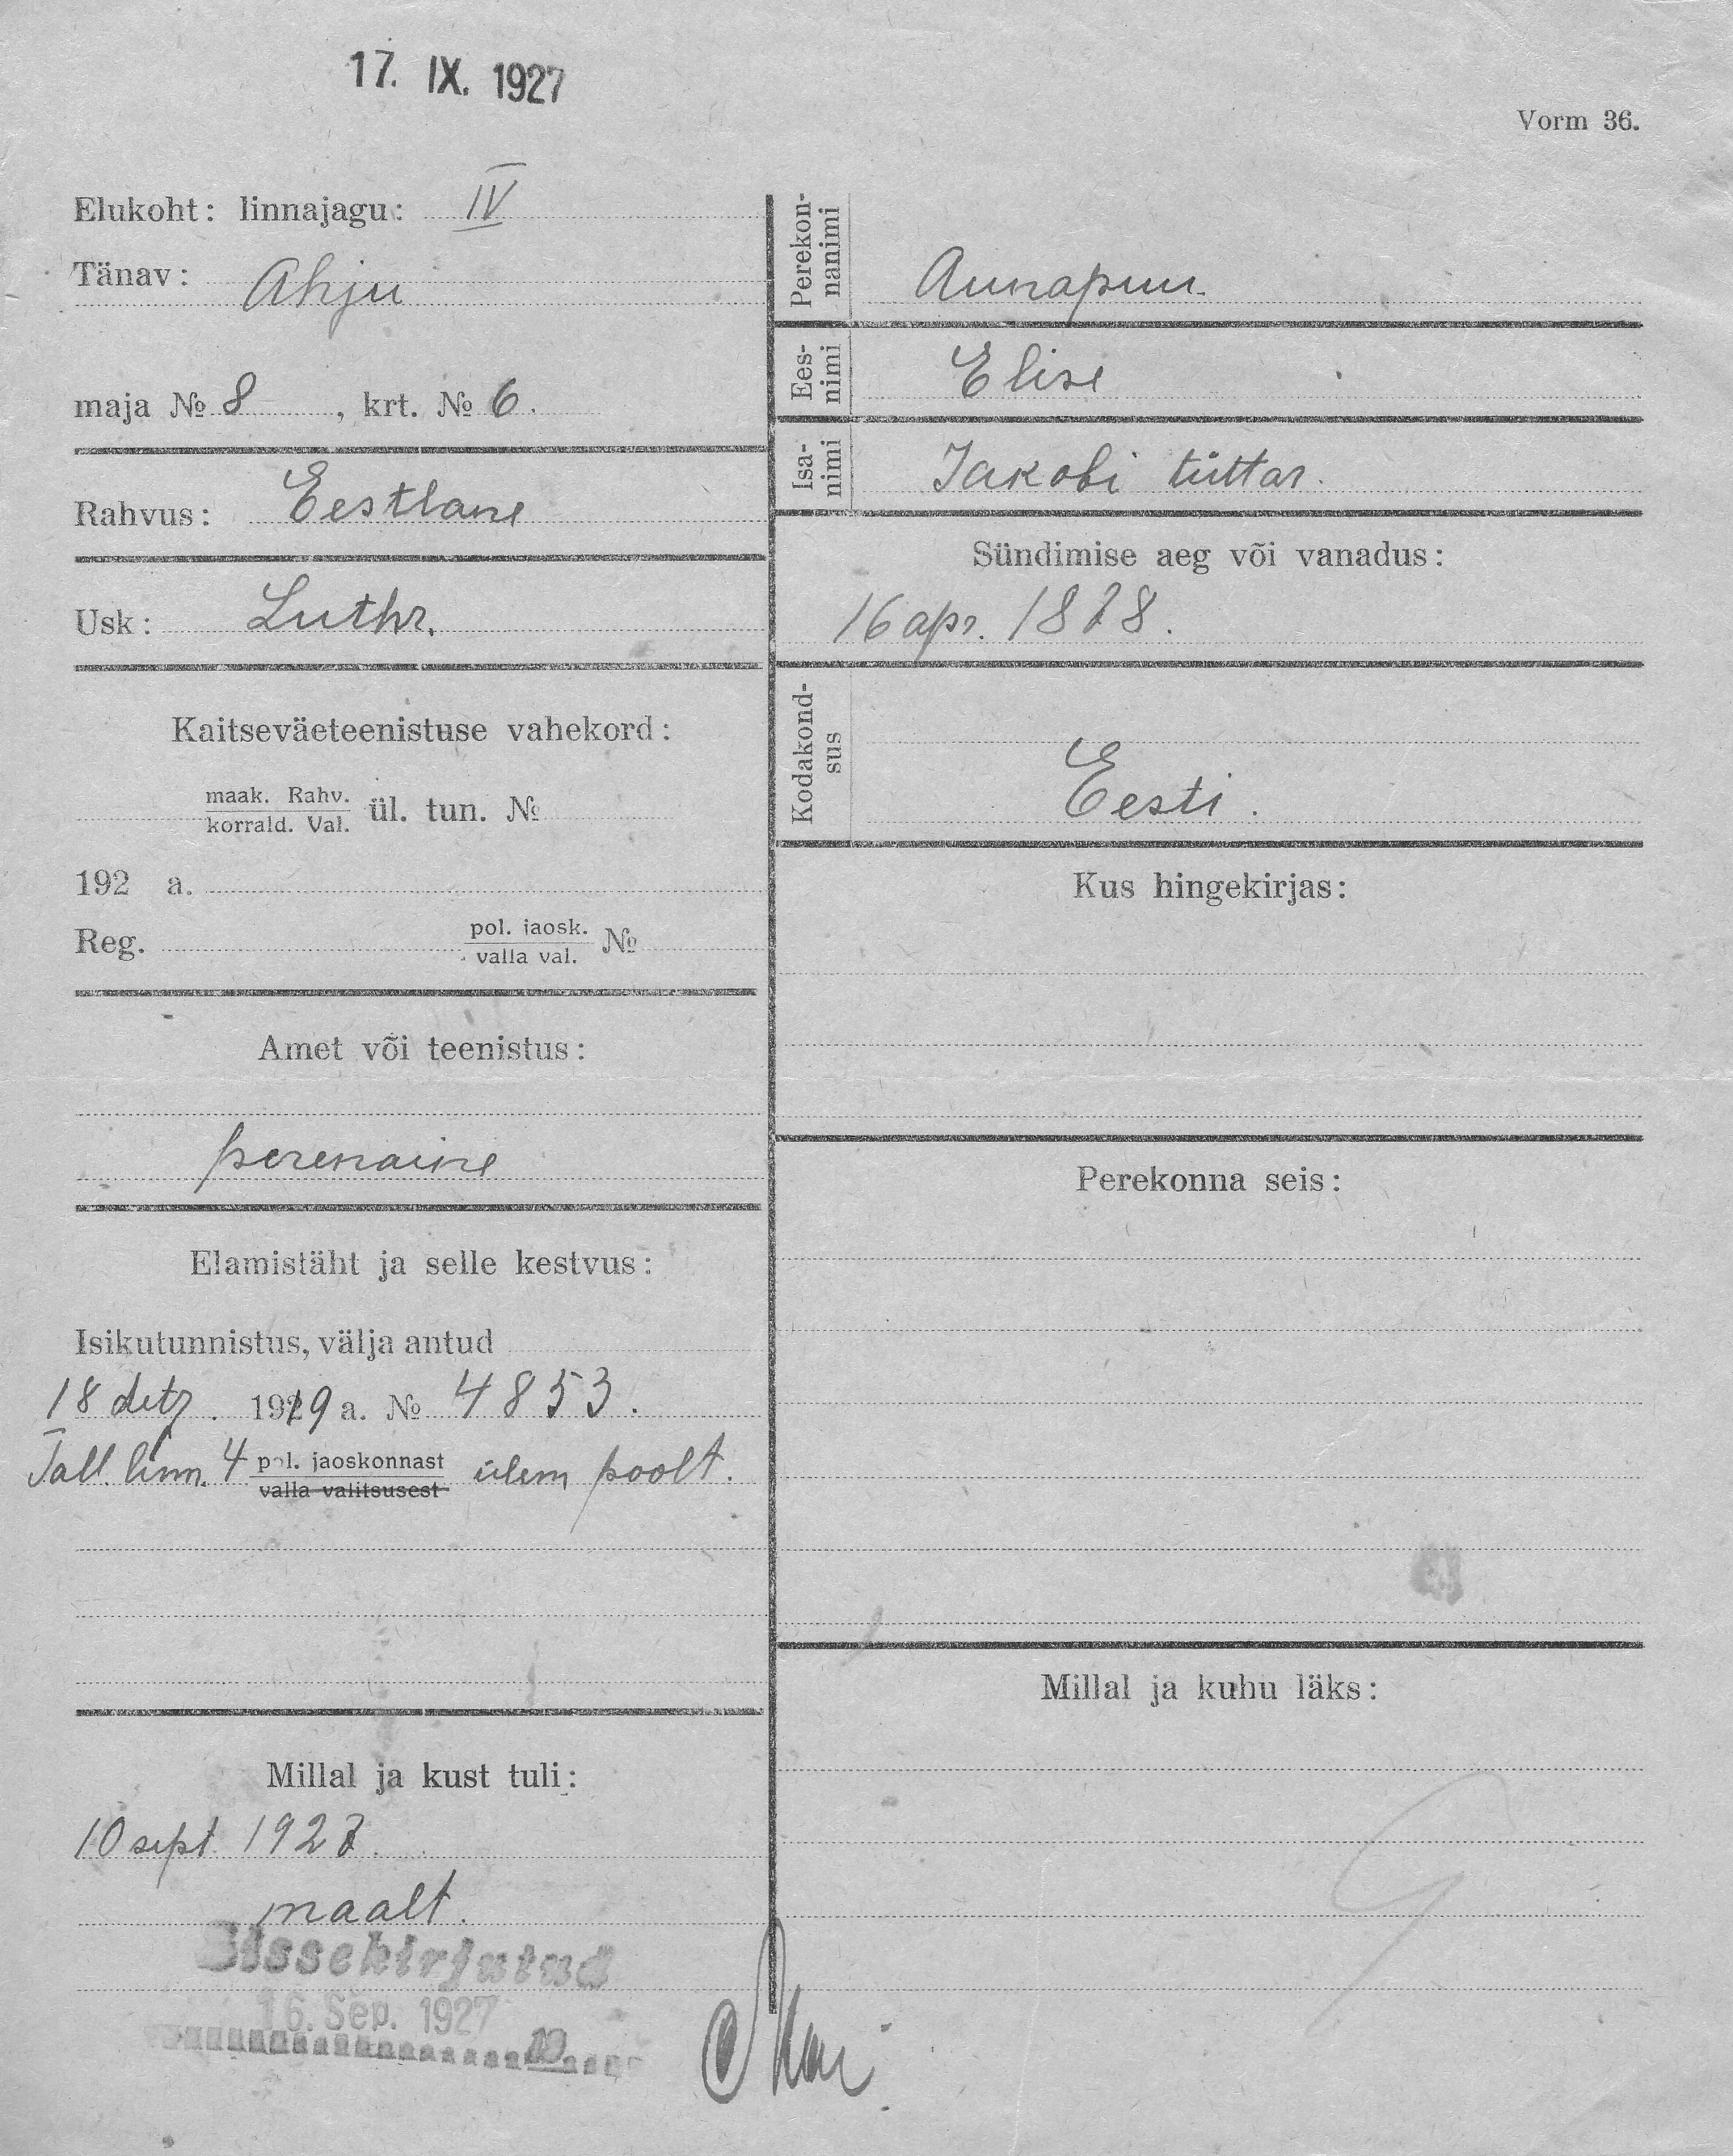 17. IX. 1927
Vorm 36.
Elukoht: linnajagu: IV
Tänav: Ahju
maja № 8, krt. № 6.
Rahvus: Eestlane
Usk: Luthr.
Kaitseväeteenistuse vahekord:
maak. Rahv.
korrald. Val.
ül. tun. №
192 a.
Reg. pol. jaosk. №
valla val.
Amet või teenistus:
perenaine
Elamistäht ja selle kestvus:
Isikutunnistus, välja antud
18 detz. 1919 a. № 4853.
Tall. linn. 4 pol. jaoskonnast ülem poolt.
valla valitsusest
Millal ja kust tuli:
10 sept. 1927.
maalt.
Sissekirjutud
16. Sep. 1927
Perekon-
nanimi
Aunapuu.
Ees-
nimi
Elise
Isa-
nimi
Jakobi tüttar.
Sündimise aeg või vanadus:
16 apr. 1878.
Kodakond-
sus
Eesti.
Kus hingekirjas:
Perekonna seis:
Millal ja kuhu läks: